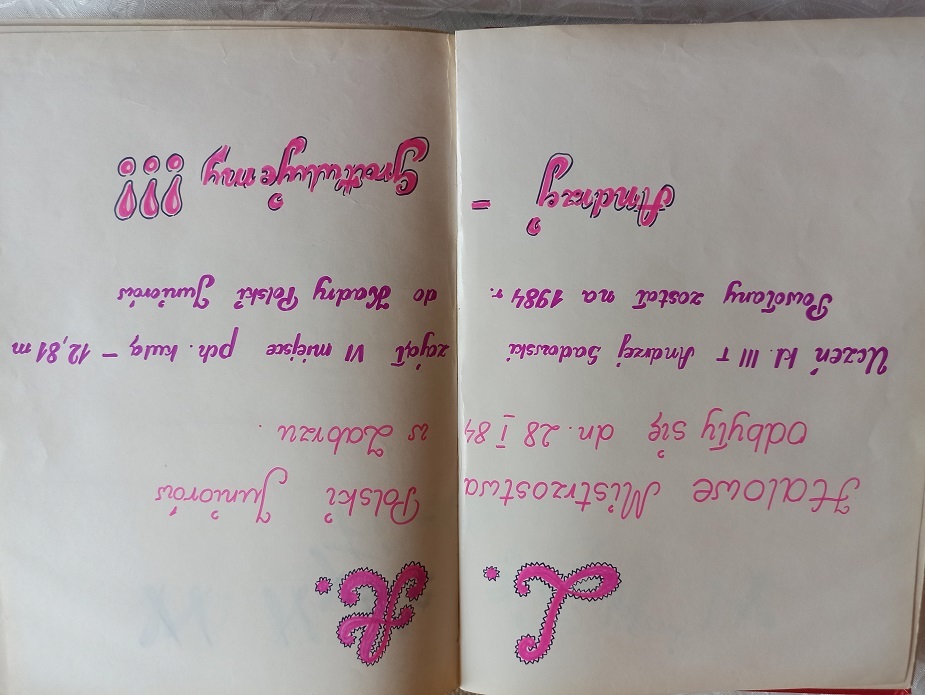 L. A.
Halowe Mistrzostwa Polski Juniorów
odbyły się dn. 28 I 84 w Zabrzu.
Uczeń kl. III T Andrzej Sadowski zajął VI miejsce pch. kulą – 12,81 m
Powołany został na 1984 r. do Kadry Polski Juniorów
Andrzej – Gratulujemy !!!